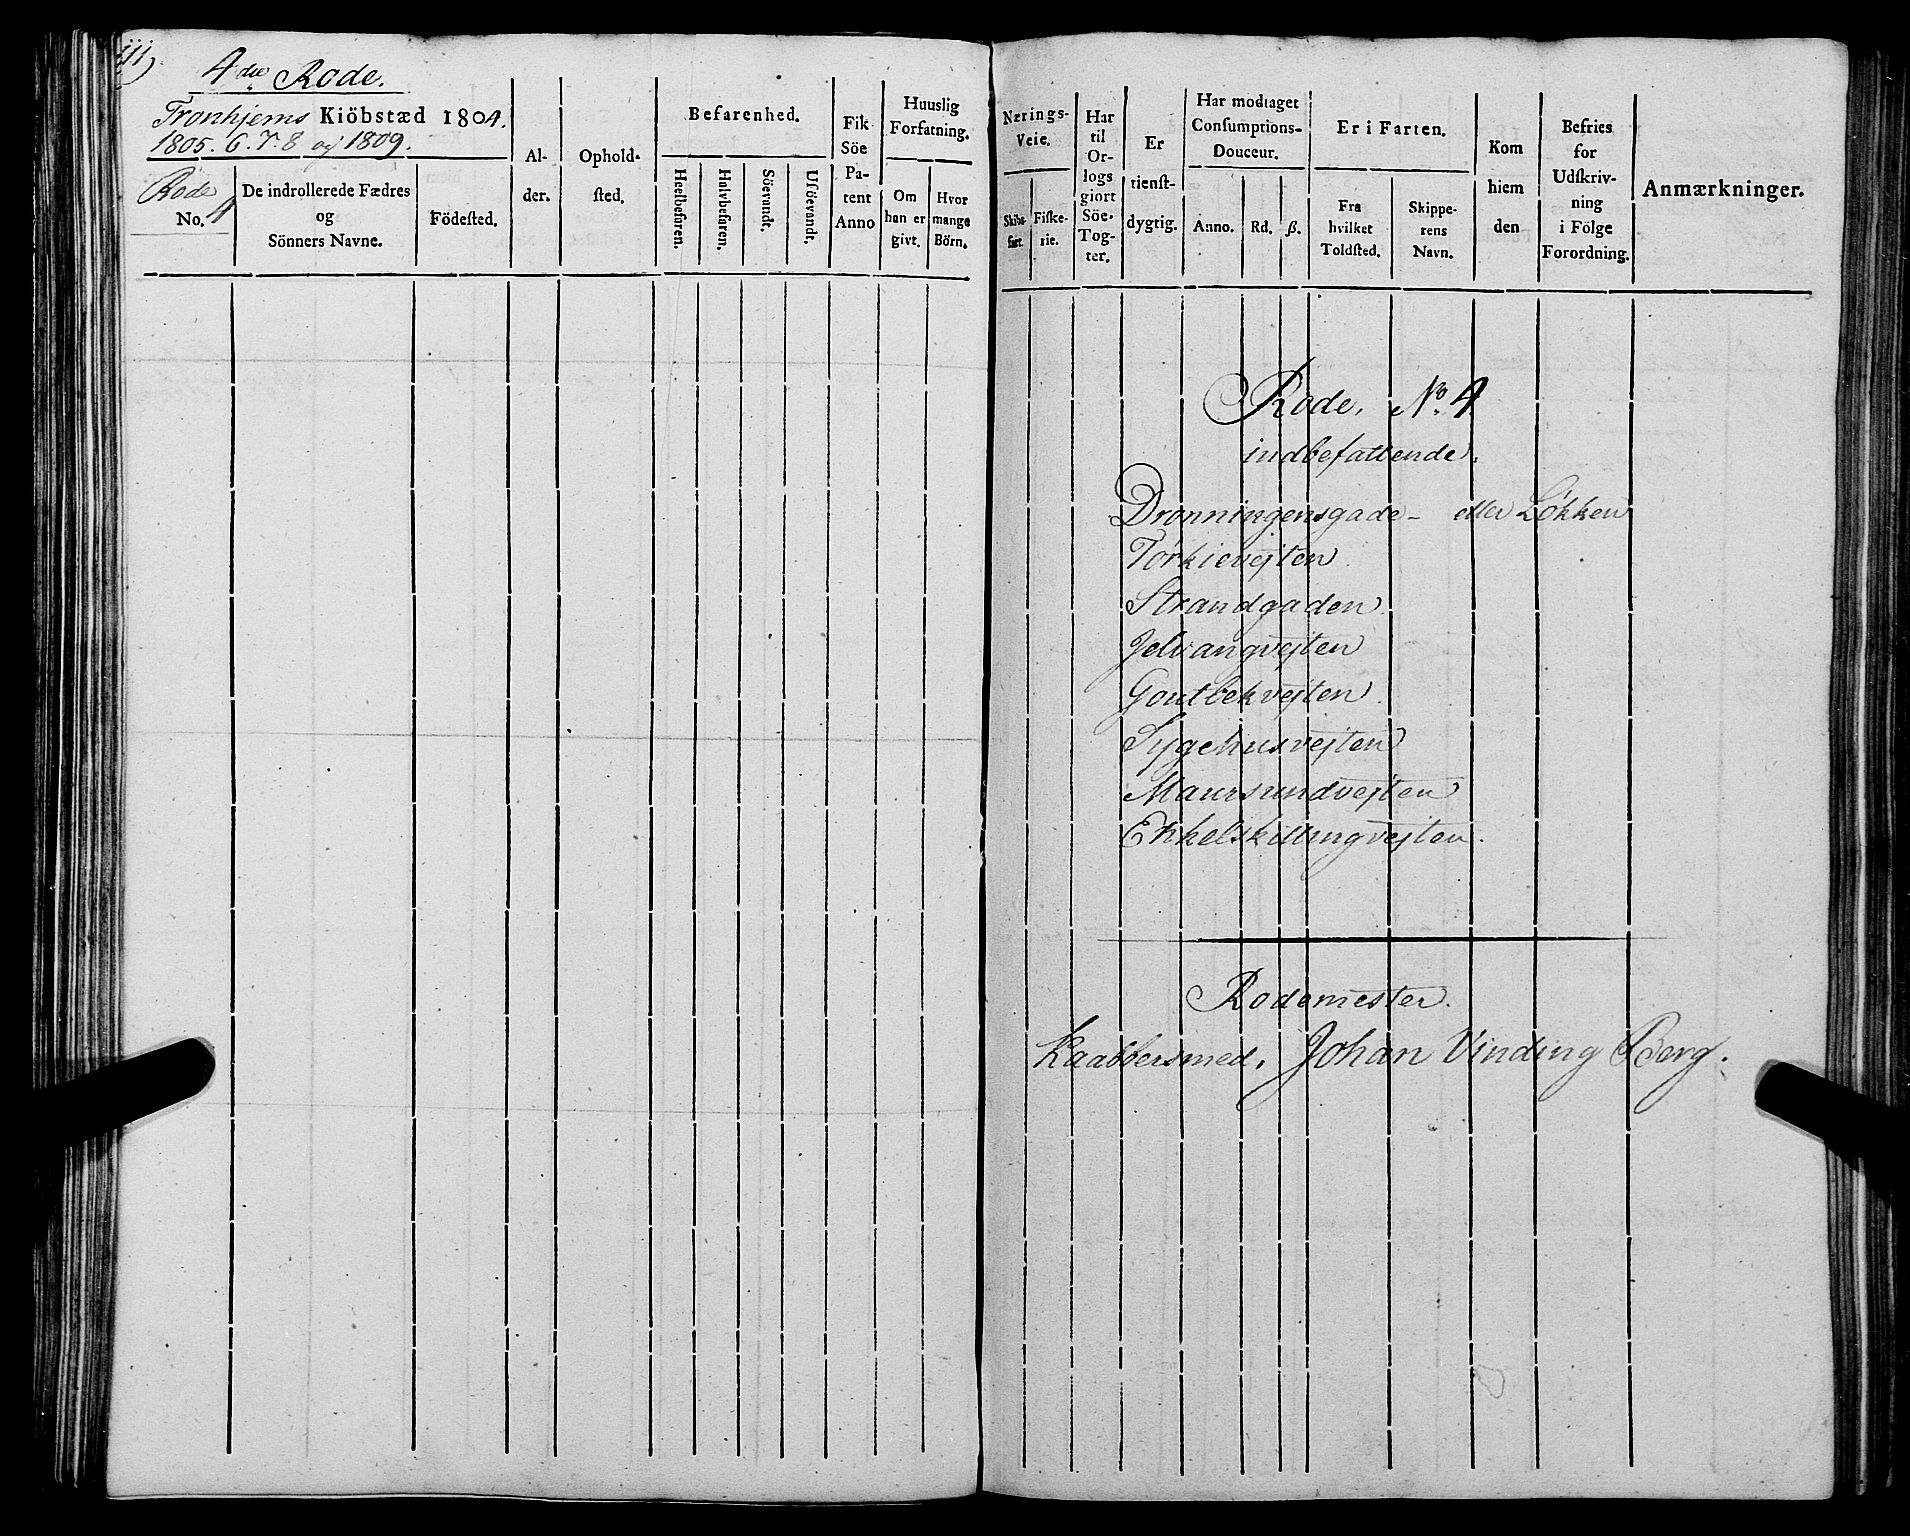 4de Rode.
Tronhjems Kiöbstæd 1804.
1805. 6. 7. 8 og 1809.
Rode
No. 4
De indrollerede Fædres
og
Sönners Navne.
Födested.
Al-
der.
Ophold-
sted.
Befarenhed.
Heelbefaren.
Halvbefaren.
Söevandt.
Usöevandt.
Fik
Söe
Pa-
tent
Anno
Huuslig
Forfatning.
Om
han er
givt.
Hvor
mange
Börn.
Nærings-
Veie.
Skibs-
fart.
Fiske-
rie.
Har
til
Or-
logs
giort
Söe-
Tog-
ter.
Er
tienst-
dygtig.
Har modtaget
Consumptions-
Douceur.
Anno.
Rd.
ß.
Er i Farten.
Fra
hvilket
Toldsted.
Skippe-
rens
Navn.
Kom
hiem
den
Befries
for
Udskriv-
ning
i Fölge
Forordning.
Anmærkninger.
Rode, No. 4
indbefattende.
Dronningensgade - eller Løkken
Tørkievejten
Strandgaden.
Jelvangvejten
Goutbekvejten.
Sygehusvejten
Maursundvejten
Enkelskillingvejten.
Rodemester.
Kaabbersmed, Johan Vinding Berg.